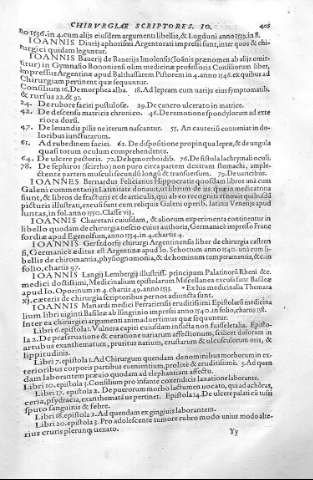 CHIRVRGIAE SCRIPTORES. IO. 405
no 1536. in 4. cum alijs eiusdem argumenti libellis, & Lugduni anno 1533. in 8.
IOANNIS Diurij aphorismi Argentorati impressi sunt, inter quos & chirurgici quidam leguntur.
IOANNIS Bauerij da Bauerijs Imolensis (Iosuis prænomen ab alijs omittitur) in Gymnasio Bononiensi olim medicinæ professoris Consiliorum liber,
impressus Argentinæ apud Balthassarem Pistorem in 4. anno 1542. ex quibus ad
Chirurgiam pertinent quæ sequuntur.
Consilium 16. De morphea alba. 18. Ad lepram cum varijs eius symptomatis,
& rursus 22. & 92.
24. De rubore faciei pustulose. 29. De cancro ulcerato in matrice.
42. De defensa matricis chronico. 46. De retentione spondylorum ad exteriora dorsi.
47. De leuandis pilis ne iterum nascantur. 57. An cauterio conueniat in doloribus iuncturarum.
61. Ad rubedinem faciei. 62. De dispositione propinqua lepræ, & de ungula
quasi totum oculum comprehendente.
64. De ulcere pectoris. 72. De hæmorrhoidib. 76. De fistula lachrymali oculi.
78. De sephiros (scirrho) non puro circa partem dextram stomachi, amplectente partem musculi secundi longi & transuersi. 79. De untrihæ.
IOANNES Bernardus Felicianus Hippocratis quosdam libros una cum
Galeni commentarijs Latinitate donauit,
sunt, & libros de fracturis et de articulis,
picturis illustrati, excusi sunt cum reliquis Galeni operib. Iatina Venetijs apud
Iuntas, in fol. anno 1550. Classe vij.
IOANNIS Charetani cuiusdam, & aliorum experimenta continentur in
libello quodam de chirurgia nescio cuius authoris, Germanicè impresso Francfordiæ apud Egenolfum, anno 1534. in 4. chartis 4
IOANNIS Gersdorfij chirurgi Argentinensis liber de chirurgia castrensi, Germanicè editus est Argentinæ apud Io. Schottum anno 1540. unà cum libellis de chiromantia, physiognomonia, & de hominum temperamentis, &c. in
folio, chartis 97.
IOANNIS Langij Lembergij illustriss. principum Palatinorū Rheni &c.
medici doctissimi, Medicinalium epistolarum Miscellanea excusa sunt Basileæ
apud Io. Oporinum in 4. chartis 49. anno 1553. Ex his medicinalia Thomæ
xj. cæteris de chirurgia scriptoribus pernos adiuncta sunt.
IOANNIS Manardi medici Ferrariensis eruditissimi Epistolarū medicinalium libri uiginti Basileæ ab Isingrinio impressi anno 1540. in folio, chartis 158.
Inter ea chirurgici argumenti animaduertimus quæ sequuntur.
Libri 6. epistola 1. Vulnera capiti cuiusdam inflicta non fuisse letalia. Epistola 2. De præseruatione & curatione uariarum affectionum, scilicet dolorum in
artubus exanthematum, pruritus narium, crustarum & ulcusculorum eius, &
lippitudinis.
Libri 7. epistola 2. Ad Chirurgum quendam de nominibus morborum in exterioribus corporis partibus euenientium, prolixe & eruditissimè. 3. Ad quendam laborantem ptæuio quodam ad elephantiam affectu.
Libri 10. epistola 3. Consilium pro infante coxendicis laxatione laborante.
Libri 17. epistola 2. De puerorum morbo lactumen uocato, qui ad achôras,
ceria, psydracia, exanthemata pertinet. Epistola 14. De ulcere palati cū tussi
sputo sanguinis & febre.
Libri 18. epistola 2. Ad quendam ex gingiuis laborantem.
Libri 20. epistola 3. Pro adolescente tumore rubro modo unius modo alterius cruris plerunq; uexato.
Yy